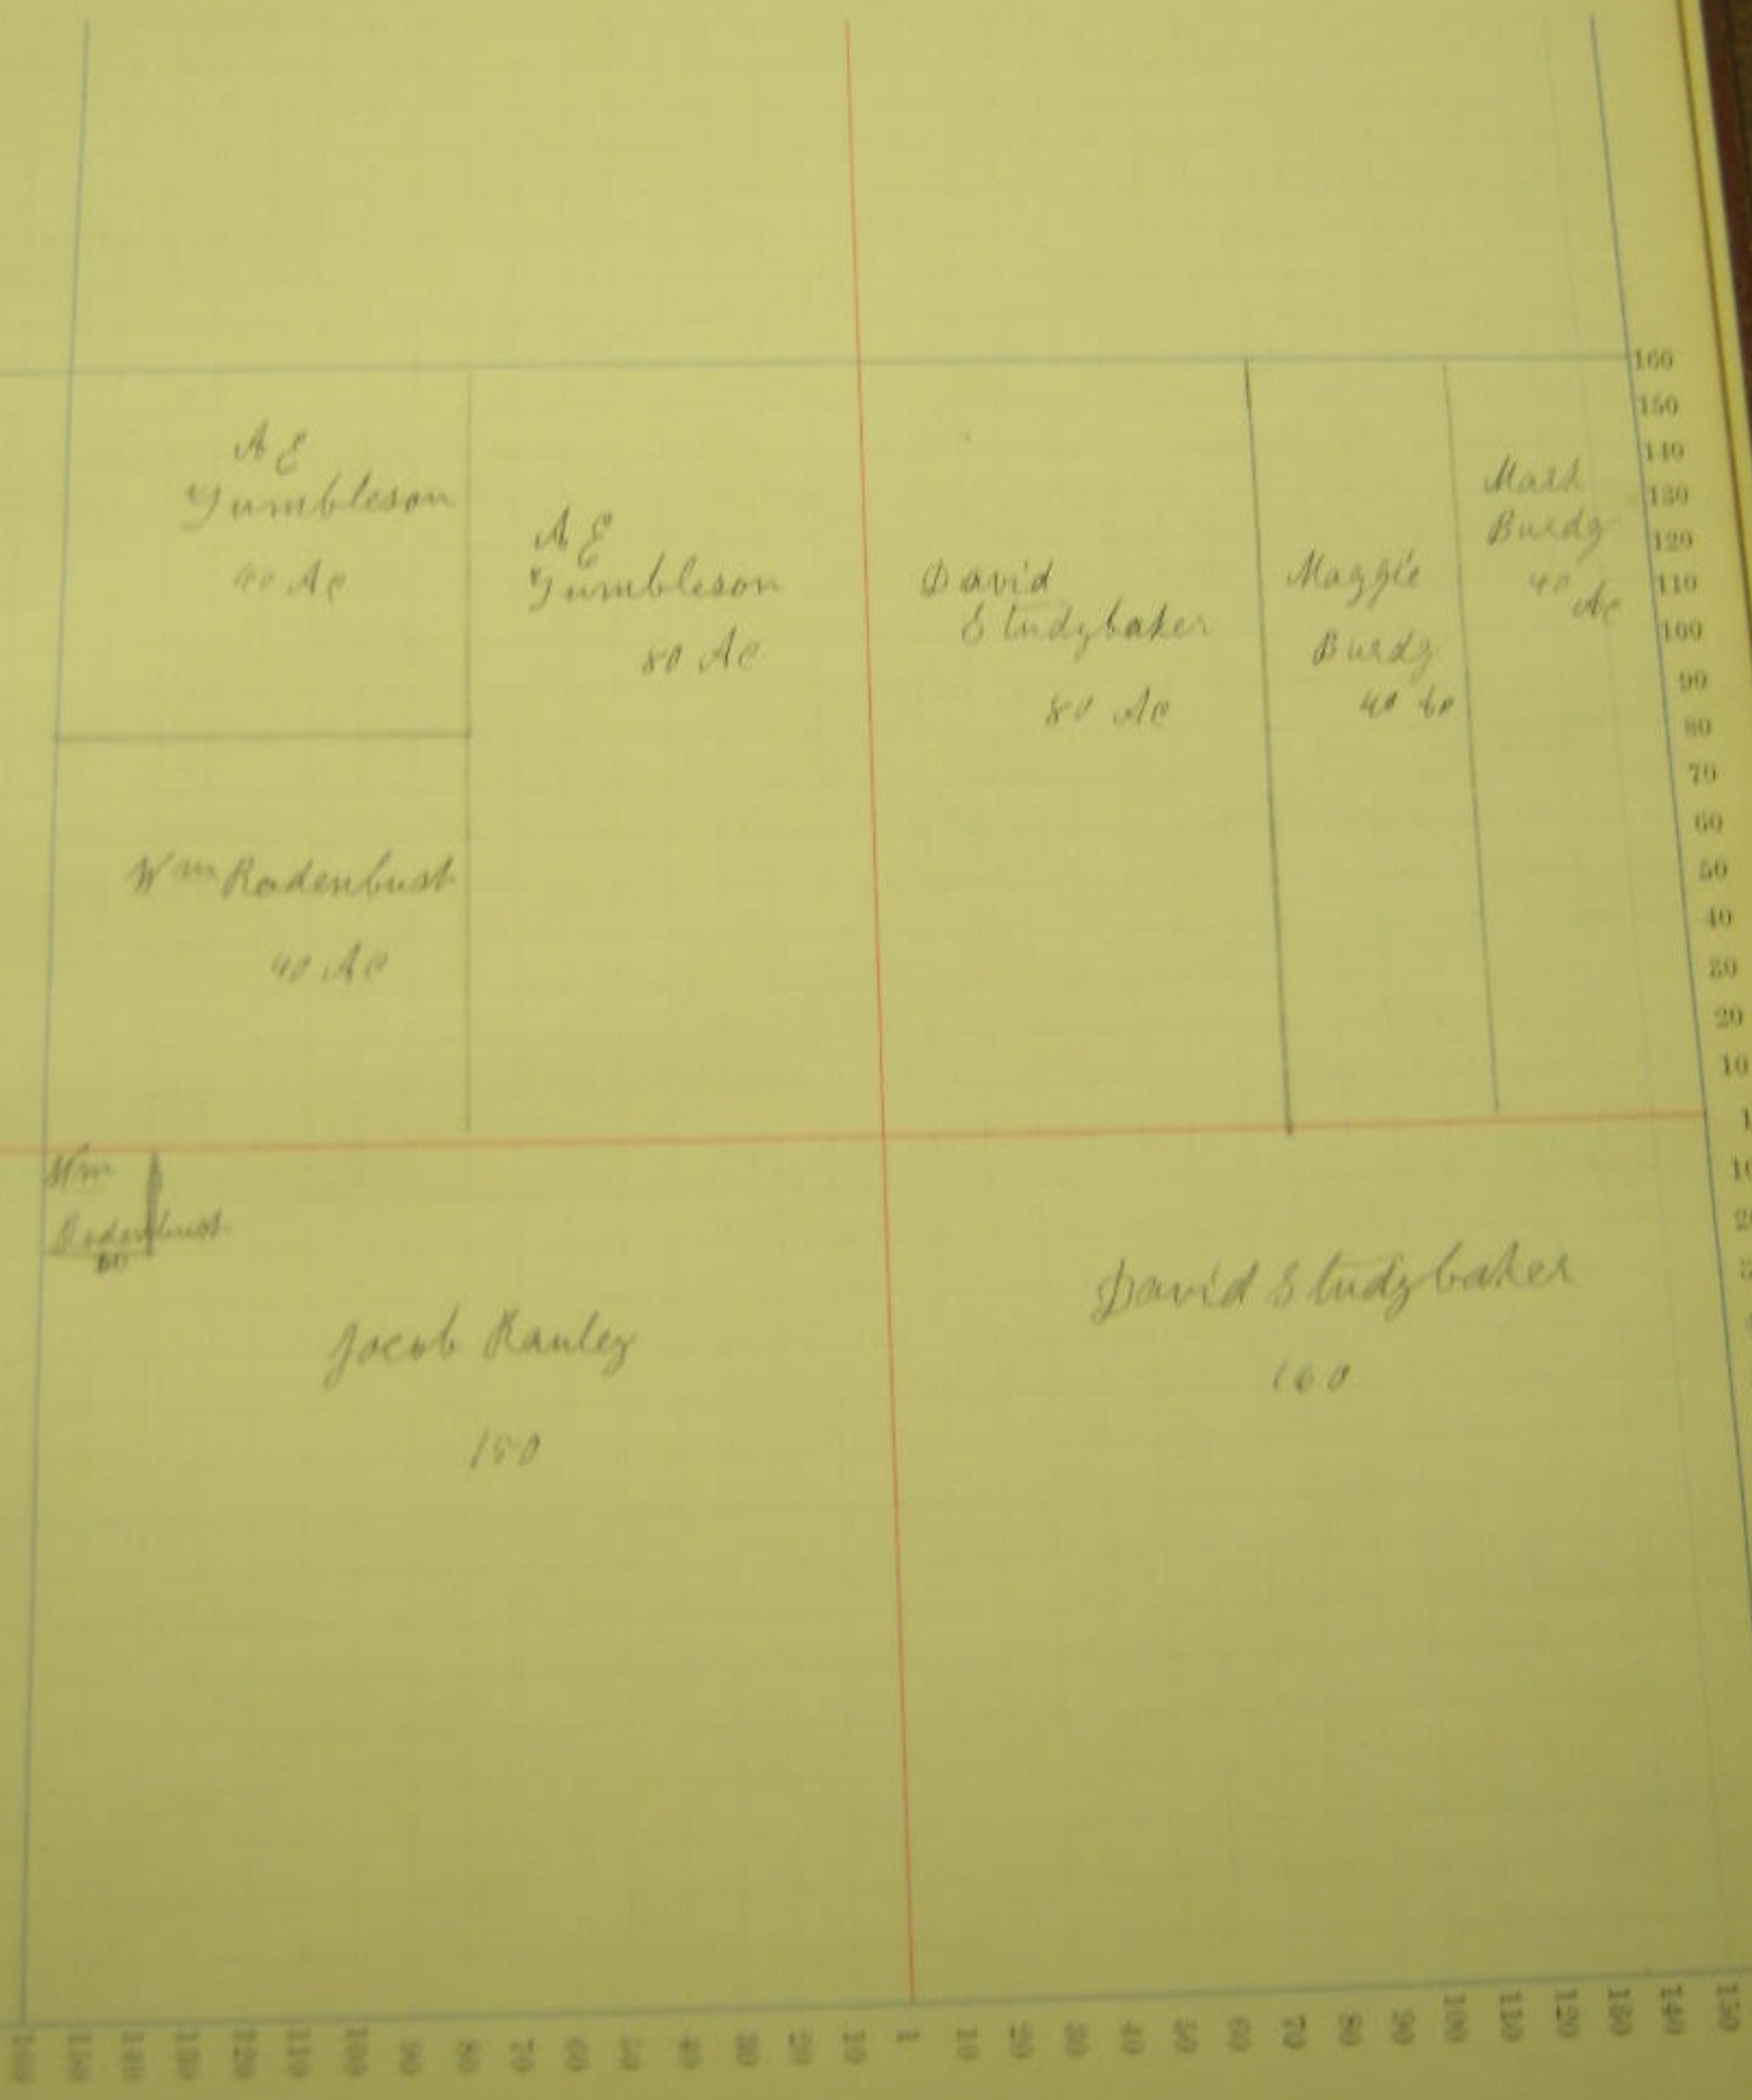 A E
Gumbleson
40 Ac
A E
Gumbleson
80 Ac
David
Studybaker
80 Ac
Maggie
Burdg
40 Ac
Mark
Burdg
40
Ac
Wm Rodenbush
40 Ac
Wm
Rodenbush
Jacob Ranley
150
David Studybaker
160
160
150
140
130
120
110
100
90
80
70
60
50
40
30
20
10
1
160 150 140 130 120 110 100 90 80 70 60 50 40 30 20 10 1 10 20 30 40 50 60 70 80 90 100 110 120 130 140 150